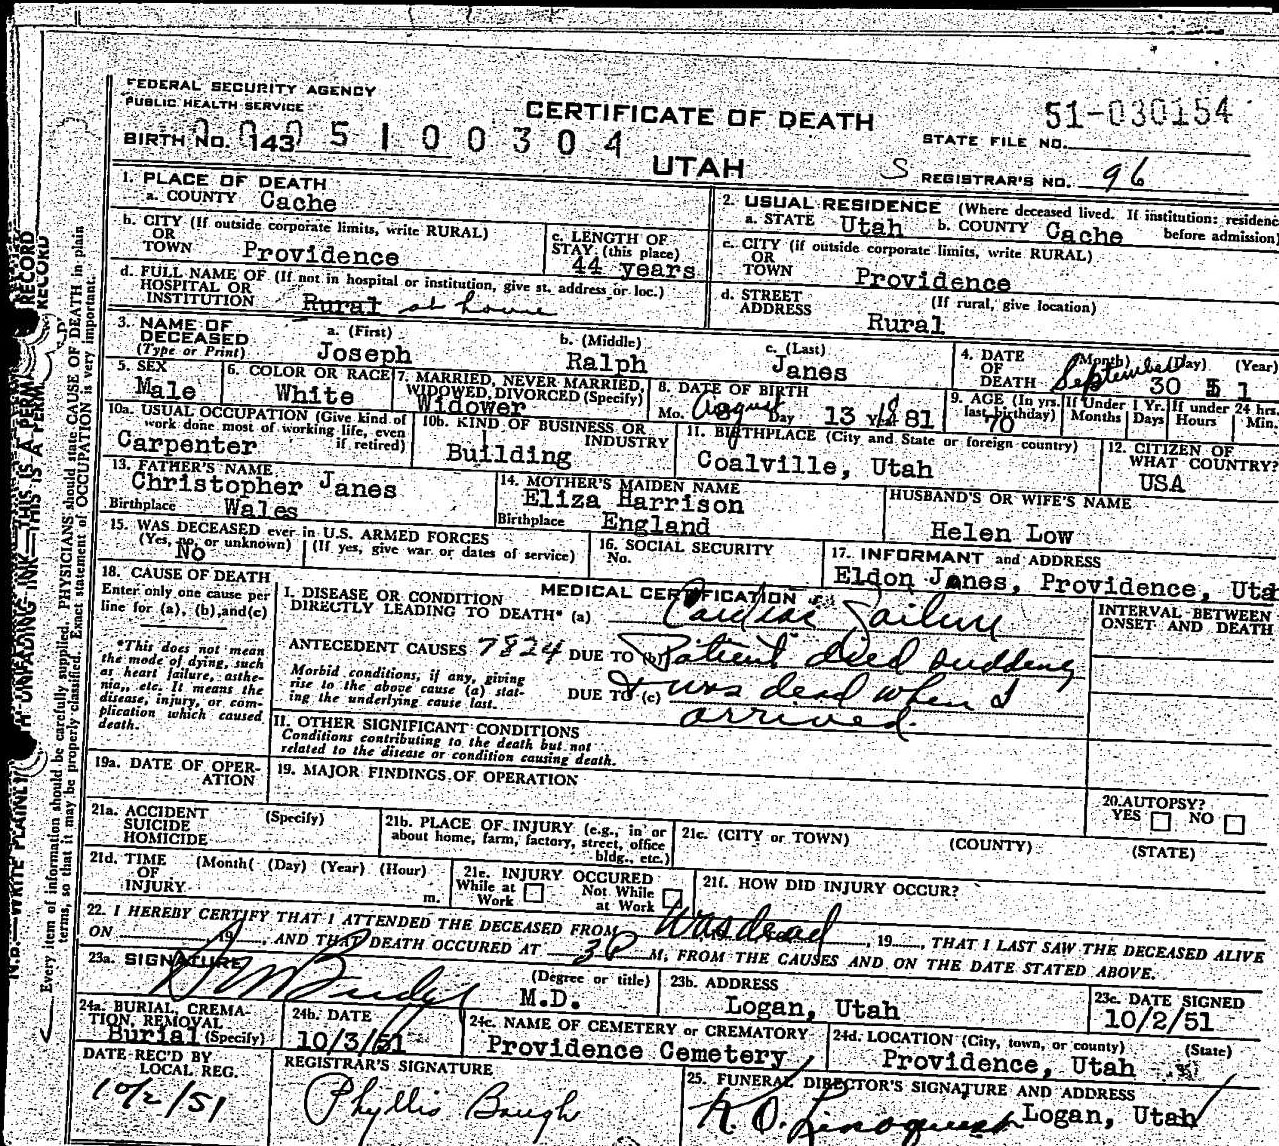 FEDERAL SECURITY AGENCY
PUBLIC HEALTH SERVICE
CERTIFICATE OF DEATH
51-030154
STATE FILE NO.
BIRTH NO. 143 0005100304
UTAH
S REGISTRAR'S NO. 96
1. PLACE OF DEATH
a. COUNTY Cache
2. USUAL RESIDENCE (Where deceased lived. If institution: residenc
a. STATE Utah b. COUNTY Cache before admission)
b. CITY (If outside corporate limits, write RURAL)
OR
TOWN Providence
c. LENGTH OF
STAY (this place)
44 years
c. CITY (if outside corporate limits, write RURAL)
OR
TOWN Providence
d. FULL NAME OF (If not in hospital or institution, give st. address or loc.)
HOSPITAL OR
INSTITUTION Rural at home
d. STREET (If rural, give location)
ADDRESS Rural
3. NAME OF
DECEASED
(Type or Print)
a. (First) b. (Middle) c. (Last)
Joseph Ralph Janes
4. DATE (Month) (Day) (Year)
OF
DEATH September 30 51
5. SEX
Male
6. COLOR OR RACE
White
7. MARRIED, NEVER MARRIED,
WIDOWED, DIVORCED (Specify)
Widower
8. DATE OF BIRTH
Mo. August Day 13 1881
9. AGE (In yrs. last birthday) If Under 1 Yr. If under 24 hrs
70 Months Days Hours Min.
10a. USUAL OCCUPATION (Give kind of
work done most of working life, even
if retired)
Carpenter
10b. KIND OF BUSINESS OR
INDUSTRY
Building
11. BIRTHPLACE (City and State or foreign country)
Coalville, Utah
12. CITIZEN OF
WHAT COUNTRY?
USA
13. FATHER'S NAME
Christopher Janes
Birthplace Wales
14. MOTHER'S MAIDEN NAME
Eliza Harrison
Birthplace England
HUSBAND'S OR WIFE'S NAME
Helen Low
15. WAS DECEASED ever in U.S. ARMED FORCES
(Yes, no, or unknown) (If yes, give war or dates of service)
No
16. SOCIAL SECURITY
No.
17. INFORMANT and ADDRESS
Eldon Janes, Providence, Uta
18. CAUSE OF DEATH
Enter only one cause per
line for (a), (b), and (c)
*This does not mean
the mode of dying, such
as heart failure, asthe-
nia, etc. It means the
disease, injury, or com-
plication which caused
death.
MEDICAL CERTIFICATION
I. DISEASE OR CONDITION
DIRECTLY LEADING TO DEATH* (a) Cardiac Failure
ANTECEDENT CAUSES 7824 DUE TO (b) Patient died suddenly
Morbid conditions, if any, giving
rise to the above cause (a) stat-
ing the underlying cause last.
DUE TO (c) & was dead when I
arrived.
II. OTHER SIGNIFICANT CONDITIONS
Conditions contributing to the death but not
related to the disease or condition causing death.
INTERVAL BETWEEN
ONSET AND DEATH
19a. DATE OF OPER-
ATION
19. MAJOR FINDINGS OF OPERATION
20. AUTOPSY?
YES NO
21a. ACCIDENT (Specify)
SUICIDE
HOMICIDE
21b. PLACE OF INJURY (e.g., in or
about home, farm, factory, street, office
bldg., etc.)
21c. (CITY or TOWN) (COUNTY) (STATE)
21d. TIME (Month( (Day) (Year) (Hour)
OF
INJURY m.
21e. INJURY OCCURED
While at Work Not While at Work
21f. HOW DID INJURY OCCUR?
22. I HEREBY CERTIFY THAT I ATTENDED THE DECEASED FROM Was dead, 19, THAT I LAST SAW THE DECEASED ALIVE
ON 19, AND THAT DEATH OCCURED AT 3P M, FROM THE CAUSES AND ON THE DATE STATED ABOVE.
23a. SIGNATURE
(Degree or title)
M.D.
23b. ADDRESS
Logan, Utah
23c. DATE SIGNED
10/2/51
24a. BURIAL, CREMA-
TION, REMOVAL
Burial (Specify)
24b. DATE
10/3/51
24c. NAME OF CEMETERY or CREMATORY
Providence Cemetery
24d. LOCATION (City, town, or county) (State)
Providence, Utah
DATE REC'D BY
LOCAL REG.
10/2/51
REGISTRAR'S SIGNATURE
Phyllis Baugh
25. FUNERAL DIRECTOR'S SIGNATURE AND ADDRESS
Logan, Utah
N.B.—WRITE PLAINLY H UNFADING INK—THIS IS A PERM RECORD
Every item of information should be carefully supplied. PHYSICIANS should state CAUSE OF DEATH in plain
terms, so that it may be properly classified. Exact statement of OCCUPATION is very important.